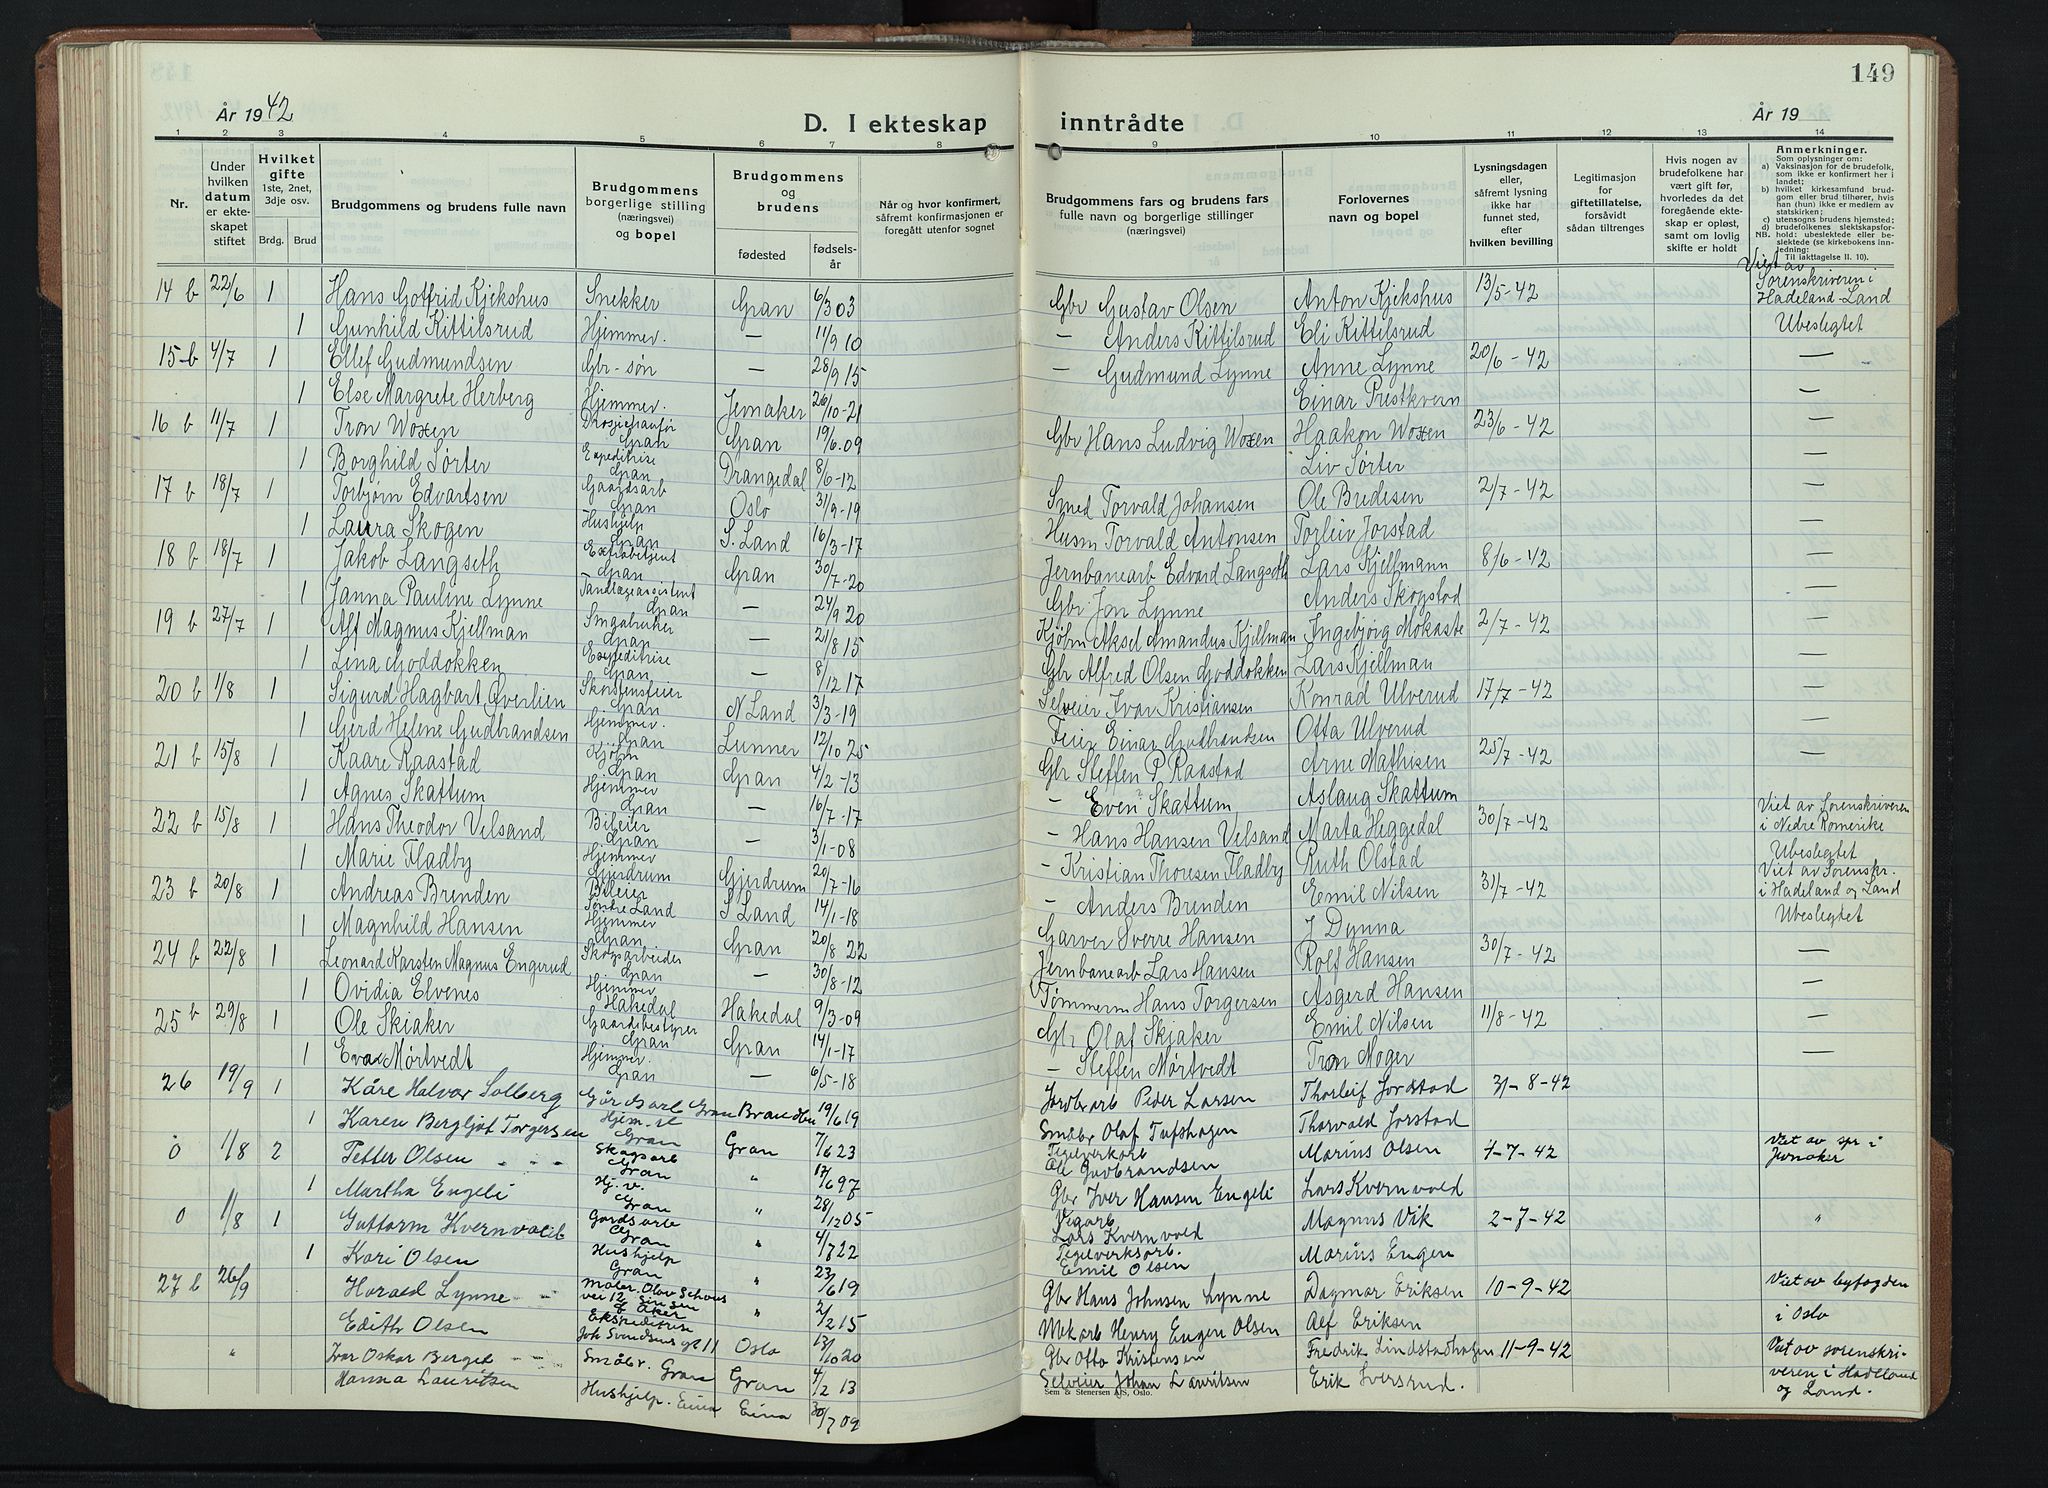 149
År 1942
D. I ekteskap inntrådte
År 19
1 2 3 4 5 6 7 8 9 10 11 12 13 14
Nr.
Under hvilken datum er ekteskapet stiftet
Hvilket gifte 1ste, 2net, 3dje osv.
Brdg. Brud
Brudgommens og brudens fulle navn
Brudgommens borgerlige stilling (næringsvei) og bopel
Brudgommens og brudens
fødested
fødselsår
Når og hvor konfirmert, såfremt konfirmasjonen er foregått utenfor sognet
Brudgommens fars og brudens fars fulle navn og borgerlige stillinger (næringsvei)
Forlovernes navn og bopel
Lysningsdagen eller, såfremt lysning ikke har funnet sted, efter hvilken bevilling
Legitimasjon for giftetillatelse, forsåvidt sådan tiltrenges
Hvis nogen av brudefolkene har vært gift før, hvorledes da det foregående ekteskap er opløst, samt om lovlig skifte er holdt
Anmerkninger.
Som oplysninger om:
a) Vaksinasjon for de brudefolk, som ikke er konfirmert her i landet;
b) hvilket kirkesamfund brudgom eller brud tilhører, hvis han (hun) ikke er medlem av statskirken;
c) utensogns brudens hjemsted;
d) brudefolkenes slektskapsforhold: ubeslektede eller beslektede (se kirkebokens innledning:
NB.
Til iakttagelse II. 10).
14 b 22/6 1 Hans Gotfrid Kjekshus Snekker Gran 6/3 03 Gbr Gustav Olsen Anton Kjekshus 13/5-42 Viet av Sorenskriveren i Hadeland-Land
1 Gunhild Kittilsrud Hjemmev. — 11/9 10 — Anders Kittilsrud Eli Kittilsrud Ubeslegtet
15-b 4/7 1 Ellef Gudmundsen Gbr-søn — 28/9 15 — Gudmund Lynne Anne Lynne 20/6-42 —
1 Else Margrete Herberg Hjemmev. Jevnaker 26/10-21 Einar Prestkvern —
16 b 11/7 1 Tron Woxen Drosjechaufør Gran Gran 19/6.09 Gbr Hans Ludvig Woxen Haakon Woxen 23/6-42 —
1 Borghild Sørter Expeditrise Gran Drangedal 8/6-12 Liv Sørter —
17 b 18/7 1 Torbjørn Edvartsen Gaardsarb Gran Oslo 31/9-19 Smed Torvald Johansen Ole Brudesen 2/7-42 —
1 Laura Skogen Hushjelp Gran S. Land 16/3-17 Husm Torvald Antonsen Torleiv Jorstad —
18 b 18/7 1 Jakob Langseth Extrabetjent Gran Gran 30/7-20 Jernbanearb Edvard Langseth Lars Kjellmann 8/6-42 —
1 Janna Pauline Lynne Tandlægeassistent Gran — 24/9 20 Gbr Jon Lynne Anders Skogstad —
19 b 27/7 1 Alf Magnus Kjellman Smaabruker Gran — 21/8 15 Kjøbm Aksel Amandus Kjellman Ingebjørg Mokaste 2/7-42 —
1 Lena Goddokken Expeditrise Gran — 8/12 17 Gbr Alfred Olsen Goddokken Lars Kjellman —
20 b 1/8 1 Sigurd Hagbart Øverlien Skorstensfeier Gran N Land 3/3-19 Selveier Ivar Kristiansen Konrad Ulverud 17/7-42 —
1 Gerd Helene Gudbrandsen Hjemmev. Gran Lunner 12/10 25 Feier Einar Gudbrandsen Otta Ulverud —
21 b 15/8 1 Kaare Raastad Kjøbm Gran Gran 4/2-13 Gbr Steffen P Raastad Arne Mathisen 25/7-42 —
1 Agnes Skattum Hjemmev Gran — 16/7-17 — Even Skattum Aslaug Skattum —
22 b 15/8 1 Hans Theodor Velsand Bileier Gran — 3/1-08 — Hans Hansen Velsand Marta Heggedal 30/7-42 Viet av Sorenskriveren i Nedre Romerike
1 Marie Fladby Hjemmev Gjerdrum Gjerdrum 20/7-16 — Kristian Thoresen Fladby Ruth Olstad Ubeslegtet
23 b 20/8 1 Andreas Brenden Bileier Søndre Land S Land 14/1-18 — Anders Brenden Emil Nilsen 31/7-42 Viet av Sorenskr. i Hadeland og Land
1 Magnhild Hansen Hjemmev Gran Gran 20/8 22 Garver Sverre Hansen J Dynna Ubeslegtet
24 b 22/8 1 Leonard Karsten Magnus Engerud Skogsarbeider Gran — 30/8-12 Jernbanearb Lars Hansen Rolf Hansen 30/7-42 —
1 Ovidia Elvenes Hjemmev Hakedal Hakedal 9/3-09 Tømmerm Hans Torgersen Asgerd Hansen —
25 b 29/8 1 Ole Skiaker Gaardsbestyrer Gran Gran 14/1-17 Gbr Olaf Skiaker Emil Nilsen 11/8-42 —
1 Eva Mørtvedt Hjemmev. Gran — 6/5-18 — Steffen Mørtvedt Tron Moger —
26 19/9 1 Kåre Halvor Solberg Gårdsarb Gran Brandbu 19/6 19 Jordbrarb Peder Larsen Thorleif Jordstad 31-8-42
1 Karen Bergljot Torgersen Hjem.v. Gran Gran 7/6 23 Småbr Olaf Tufshagen Thorvald Jorstad
0 1/8 2 Petter Olsen Skogsarb Gran " 17/6 97 Teglverkarb Ole Gudbrandsen Marius Olsen 1-7-42 Viet av spr i Jevnaker
1 Martha Engeli Hj. v. Gran " 28/12 05 Gbr Iver Hansen Engeli Lars Kvernvold
0 1/8 1 Guttorm Kvernvold Gårdsarb Gran " 4/7 22 Vegarb Lars Kvernvold Magnus Vik 2-7-42 "
1 Kari Olsen Hushjelp Gran " 23/6 19 Teglverksarb. Emil Olsen Marius Engen
27 b 26/9 Harald Lynne Maler. Olav Schous vei 12 Sinsen Aker " 2/2 15 Gbr Hans Johnsen Lynne Dagmar Eriksen 10-9-42 Viet av byfogden
Edith Olsen Ekspeditrise Joh Svendsens gt 11 Oslo 13/10 20 Mek arb Henry Engen Olsen Alf Eriksen i Oslo
" Ivar Oskar Berget Småbr. Gran Gran 4/2 13 Gbr Otto Kristensen Fredrik Lindstadhagen 11-9-42 Viet av sorenskri-
Hanna Lauritsen Hushjelp. Eina Eina 30/7 09 Selveier Johan Lauritsen Erik Iversrud. veren i Hadeland og Land.
Sem & Stenersen A/S, Oslo.